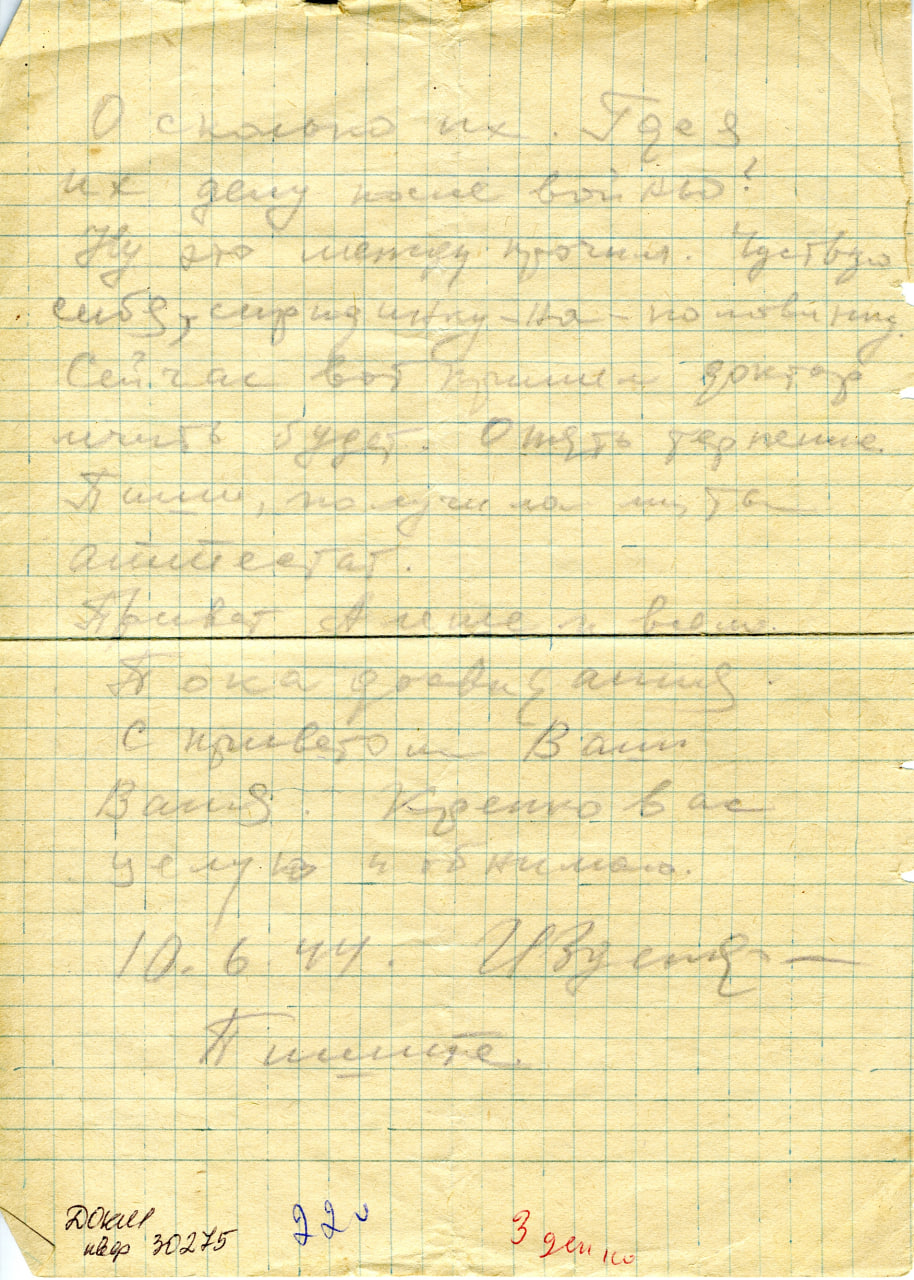 О сколько их. Где я
их дену после войны?
Ну это между прочим. Чуствую
себя, середин ку-на-половинку.
Сейчас вот пришел доктор
мучить будет. Опять терпение.
Пиши, получила ли ты
аттестат.
Привет Алеше и всем.
Пока досвидания.
С приветом Ваш
Ваня. Крепко вас
целую и обнимаю.
10.6.44.
Пишите.
ДОКМ
нвф 30275
22
3